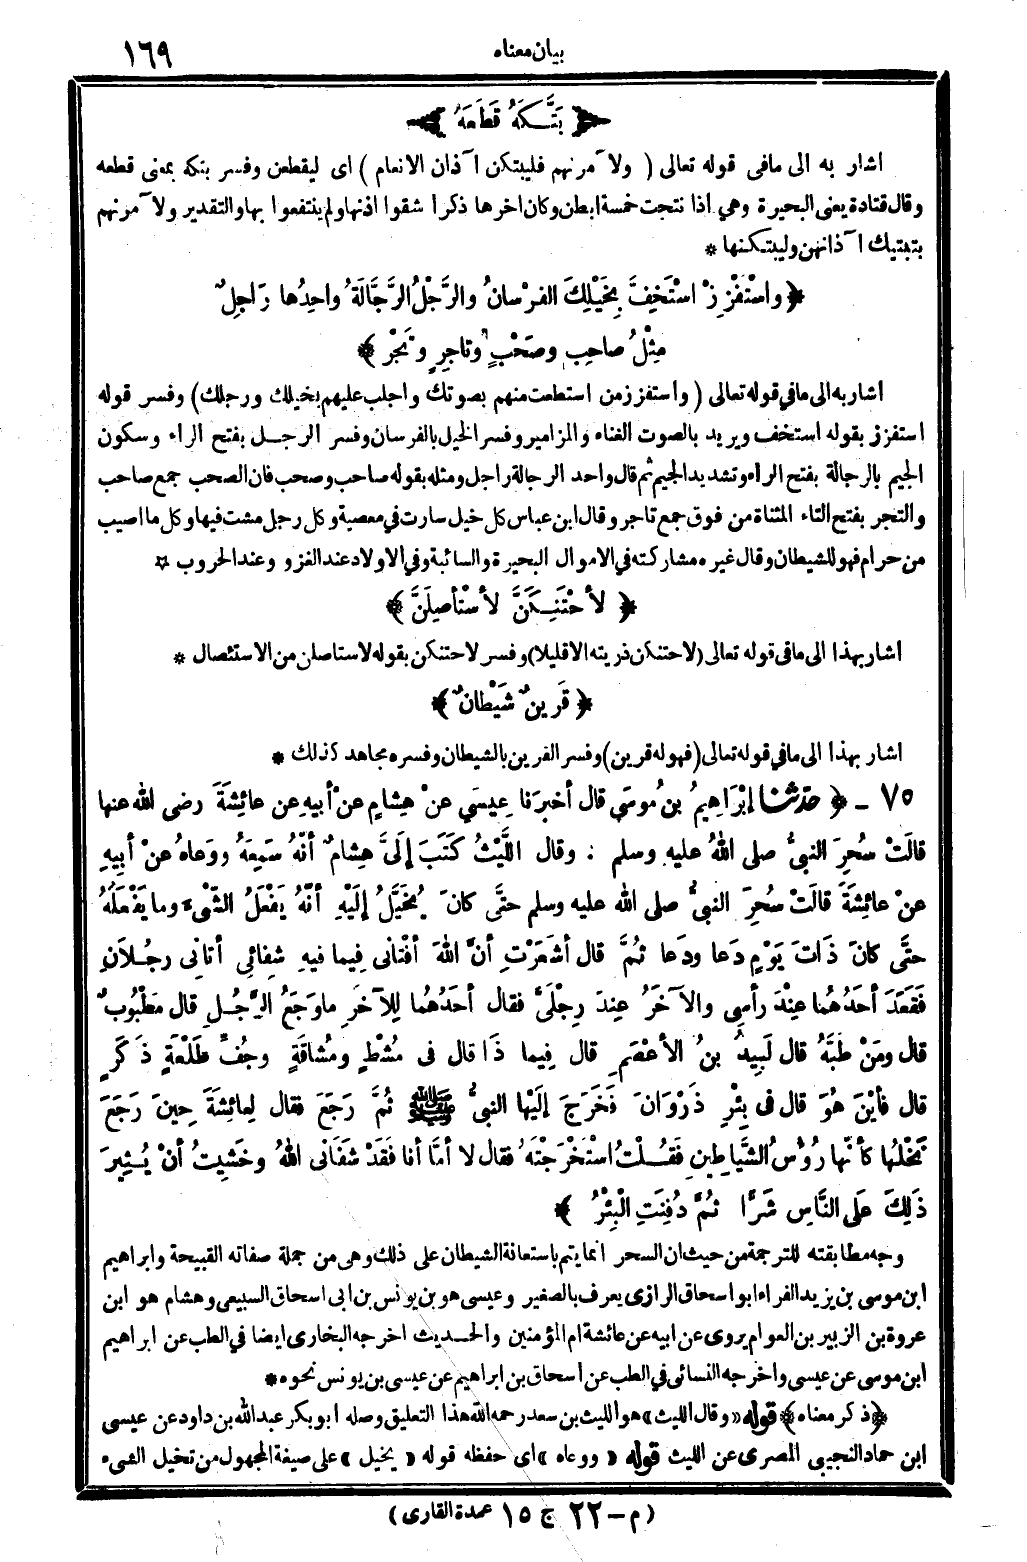 بيان معناه ١٦٩
﴿ بَتَّكَهُ قَطَعَهُ ﴾
اشار به الى مافى قوله تعالى ( ولآمرنهم فليبتكن آذان الانعام ) اى ليقطعن وفسر بتكه بمعنى قطعه
وقال قتادة يعنى البحيرة وهي اذا نتجت خمسة ابطن وكان اخرها ذكرا شقوا اذنها ولم ينتفعوا بها والتقدير ولآمرنهم
بتبتيك آذانهن وليبتكنها *
﴿ واسْتَفْزِزْ اسْتَخِفَّ بِخَيْلِكَ الفُرْسانُ والرَّجْلُ الرَّجَّالَةُ واحِدُها رَاجِلٌ
مِثْلُ صاحِبٍ وصَحْبٍ وتاجِرٍ وتَجْرٍ ﴾
اشار به الى مافي قوله تعالى ( واستفزز من استطعت منهم بصوتك واجلب عليهم بخيلك ورجلك) وفسر قوله
استفزز بقوله استخف ويريد بالصوت الغناء والمزامير وفسر الخيل بالفرسان وفسر الرجل بفتح الراء وسكون
الجيم بالرجالة بفتح الراء وتشديد الجيم ثم قال واحد الرجالة راجل ومثله بقوله صاحب وصحب فان الصحب جمع صاحب
والتجر بفتح التاء المثناة من فوق جمع تاجر وقال ابن عباس كل خيل سارت في معصية وكل رجل مشت فيها وكل ما اصيب
من حرام فهو للشيطان وقال غيره مشاركته في الاموال البحيرة والسائبة وفي الاولاد عند الغزو وعند الحروب *
﴿ لأَحْتَنِكَنَّ لأَسْتَأصِلَنَّ ﴾
اشار بهذا الى مافي قوله تعالى (لاحتنكن ذريته الاقليلا) وفسر لاحتنكن بقوله لاستاصلن من الاستئصال *
﴿ قَرِينٌ شَيْطانٌ ﴾
اشار بهذا الى مافي قوله تعالى (فهوله قرين) وفسر القرين بالشيطان وفسره مجاهد كذلك *
٧٥ - ﴿ حدثنا إبْرَاهِيمُ بنُ مُوسَى قال أخبرَنا عِيسَي عنْ هِشامٍ عنْ أبِيهِ عنْ عائِشَةَ رضى الله عنها
قالَتْ سُحِرَ النبىُّ صلى اللهُ عليه وسلم : وقال اللَّيْثُ كَتَبَ إلَىَّ هِشامٌ أنَّهُ سَمِعَهُ ووَعاهُ عنْ أبِيهِ
عنْ عائِشَةَ قالَتْ سُحِرَ النبىُّ صلى الله عليه وسلم حتَّى كانَ يُخَيَّلُ إلَيْهِ أنَّهُ يَفْعَلُ الشَّىْءَ وما يَفْعَلُهُ
حتَّى كانَ ذَاتَ يَوْمٍ دَعا ودَعا ثُمَّ قال أشَعَرْتِ أنَّ اللهَ أفْتانى فِيما فيهِ شِفائِي أتانِى رجُلاَنِ
فَقَعَدَ أحَدُهُما عِنْدَ رأسِى والآخَرُ عِندَ رِجْلَىَّ فقال أحَدُهُما لِلآخَرِ ماوَجَعُ الرَّجُلِ قال مَطْبُوبٌ
قال ومَنْ طَبَّهُ قال لَبِيدُ بنُ الأعْصَمِ قال فِيما ذَا قال فى مُشْطٍ ومُشاقَةٍ وجُفِّ طَلْعَةٍ ذَكَرٍ
قال فأيْنَ هُوَ قال فى بِئْرِ ذَرْوَانَ فَخَرَجَ إلَيْها النبىُّ ﷺ ثُمَّ رَجَعَ فقال لِعائِشَةَ حِينَ رَجَعَ
نَخْلُها كأنَّها رُؤُسُ الشَّياطِينِ فَقُلْتُ اسْتَخْرَجْتَهُ فقال لا أمَّا أنا فَقَدْ شَفَانى اللهُ وخَشِيتُ أنْ يُثِيرَ
ذَلِكَ عَلَى النَّاسِ شَرًّا ثُمَّ دُفِنَتِ الْبِئْرُ ﴾
وجه مطابقته للترجمة من حيث ان السحر انما يتم باستعانة الشيطان على ذلك وهى من جملة صفاته القبيحة وابراهيم
ابن موسى بن يزيد الفراء ابو اسحاق الرازى يعرف بالصغير وعيسى هو بن يونس بن ابى اسحاق السبيعى وهشام هو ابن
عروة بن الزبير بن العوام يروى عن ابيه عن عائشة ام المؤمنين والحديث اخرجه البخارى ايضا في الطب عن ابراهيم
ابن موسى عن عيسى واخرجه النسائى في الطب عن اسحاق بن ابراهيم عن عيسى بن يونس نحوه *
﴿ذكر معناه﴾ قوله «وقال الليث» هو الليث بن سعد رحمه الله هذا التعليق وصله ابوبكر عبدالله بن داود عن عيسى
ابن حماد النجيبى المصرى عن الليث قوله « ووعاه » اى حفظه قوله « يخيل » على صيغة المجهول من تخيل الشىء
(م - ٢٢ ج ١٥ عمدة القارى)